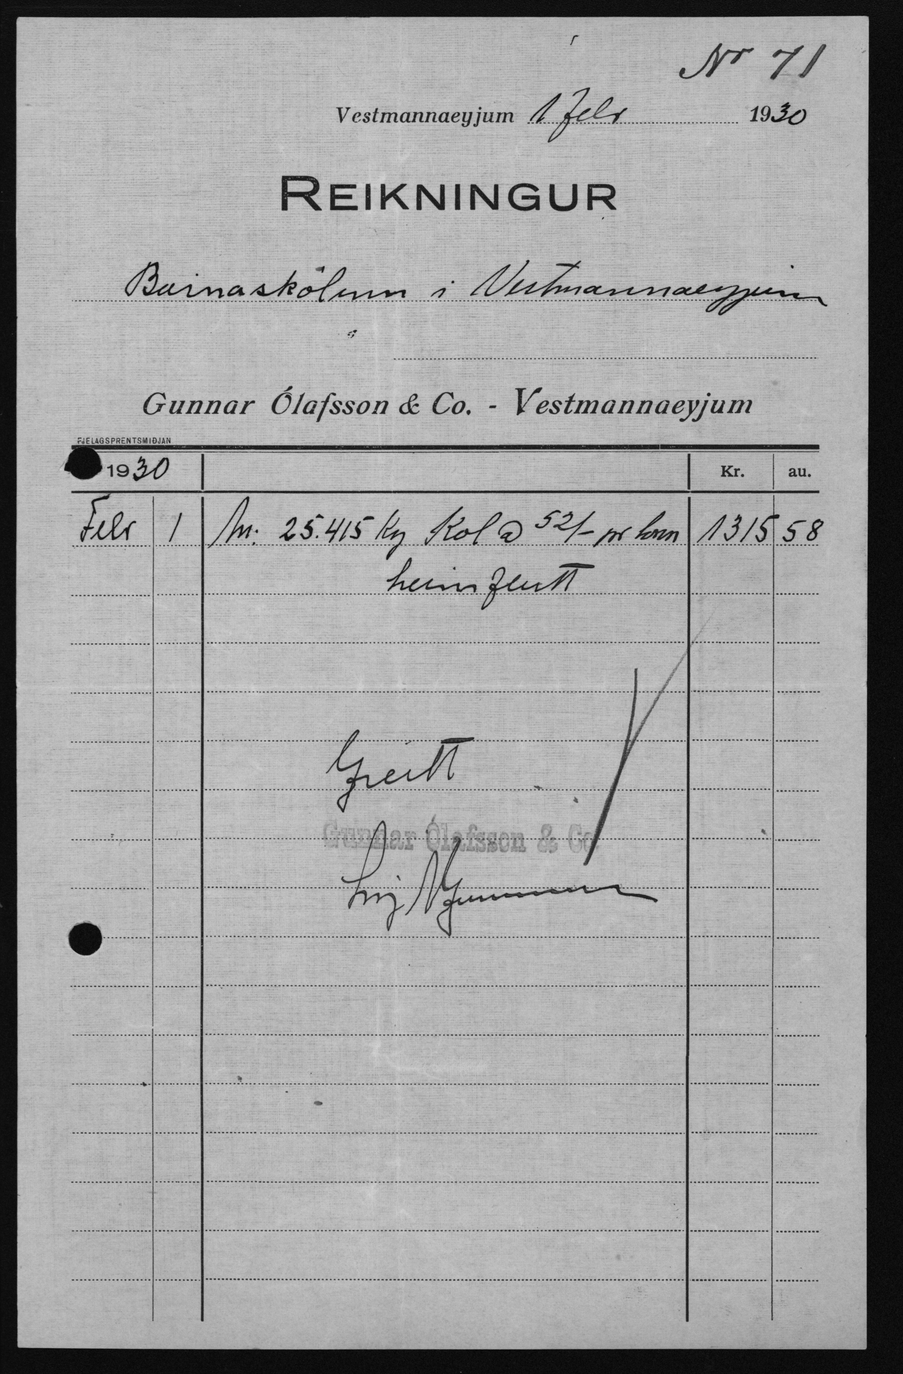 Nr 71
Vestmannaeyjum 1 febr 1930
REIKNINGUR
Barnaskólinn í Vestmannaeyjum
Gunnar Ólafsson & Co. - Vestmannaeyjum
FJELAGSPRENTSMIÐJAN
1930 Kr. au.
Febr 1 25.415 kg Kol @ 52/- pr tonn 1315 58
heimflutt
Greitt
Gunnar Ólafsson & Co